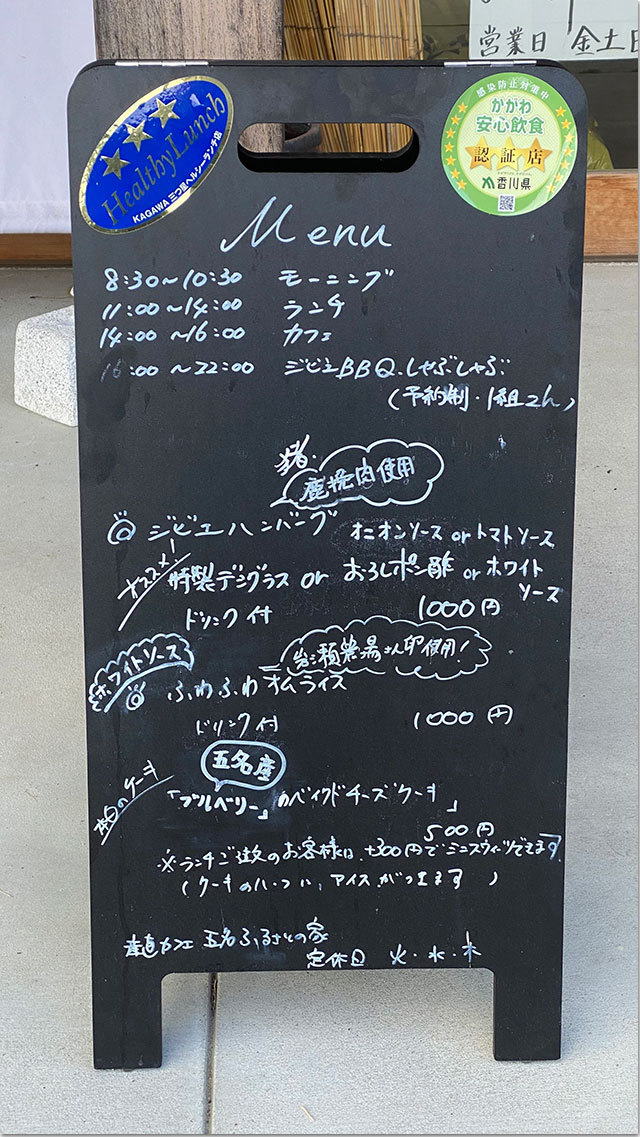 営業日 金土日
Healthy Lunch
KAGAWA 三つ星ヘルシーランチ店
感染防止対策中
かがわ
安心飲食
認証店
香川県
Menu
8:30～10:30 モーニング
11:00～14:00 ランチ
14:00～16:00 カフェ
16:00～22:00 ジビエBBQ.しゃぶしゃぶ
(予約制・1組さん)
猪・
鹿挽肉使用
◎ ジビエハンバーグ オニオンソース or トマトソース
オススメ!
特製デミグラス or おろしポン酢 or ホワイト
ソース
ドリンク付 1000円
岩瀬農場さん卵使用!
ホワイトソース
◎ ふわふわオムライス
ドリンク付 1000円
五名産
本日のケーキ
「ブルベリー」のベイクドチーズケーキ」
500円
※ランチご注文のお客様は、+300円でミニスウィーツできます
(ケーキのハーフに、アイスがつきます)
産直カフェ 五名ふるさとの家
定休日 火・水・木